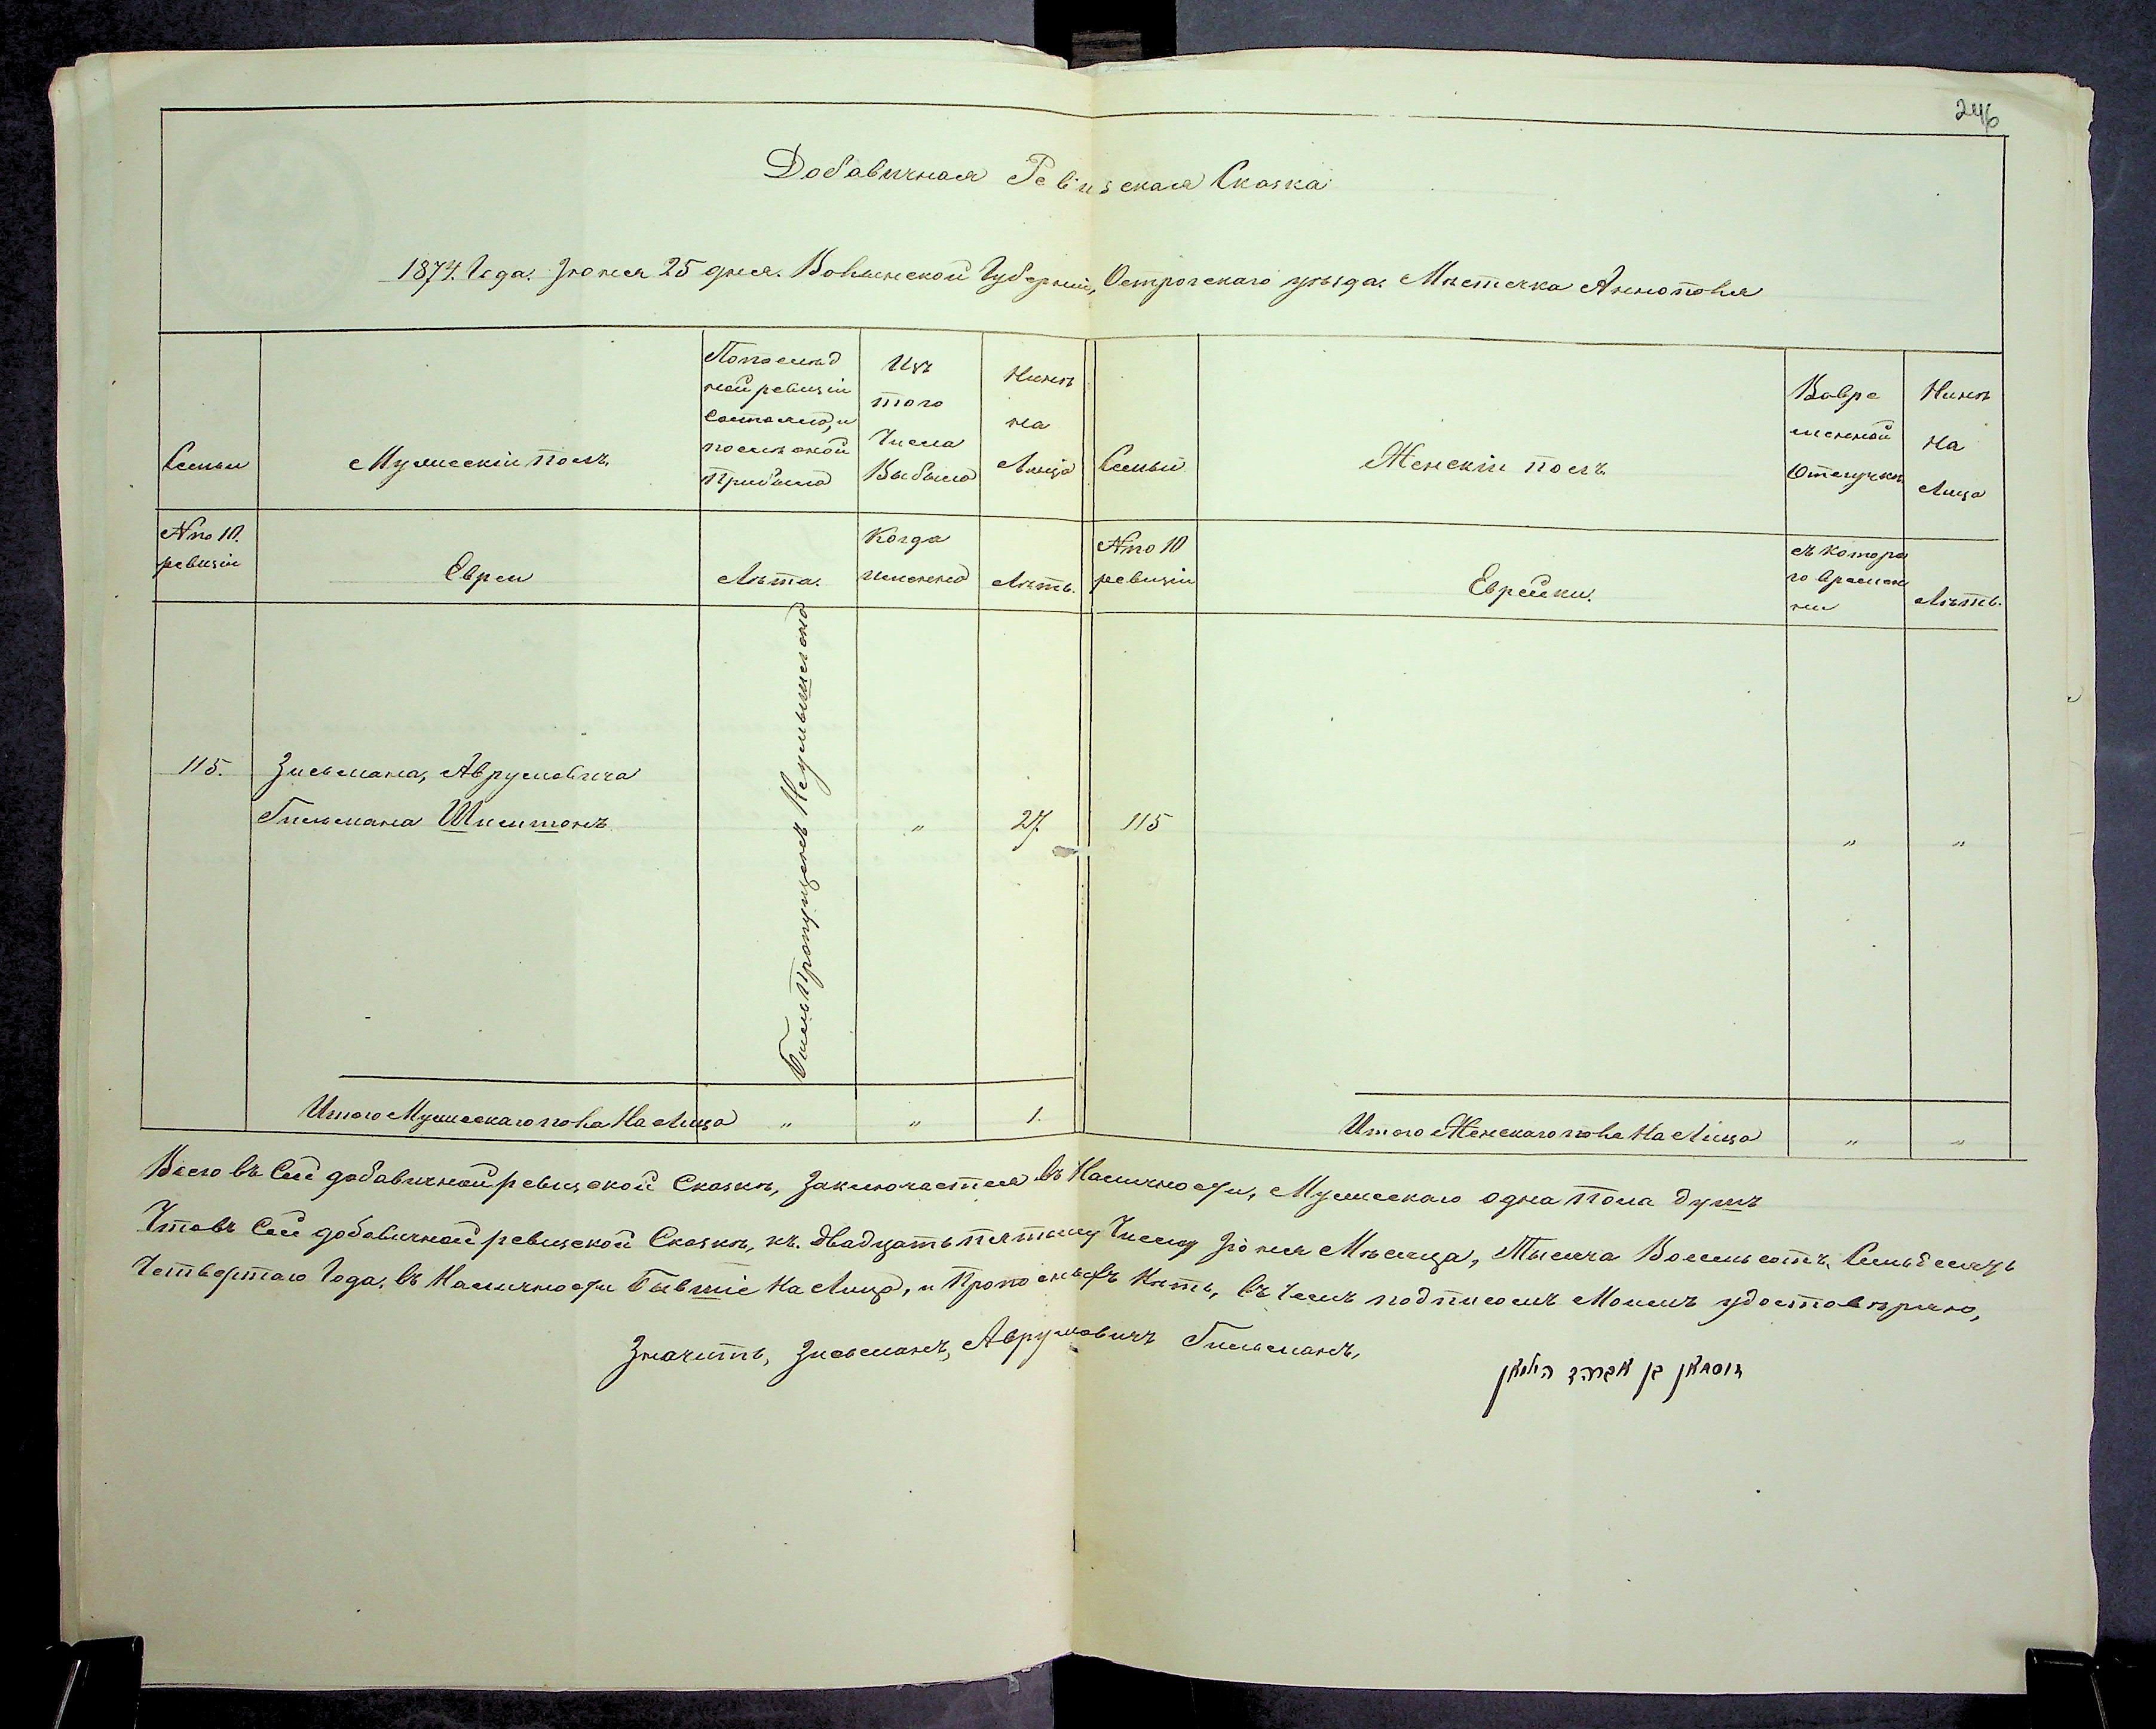 246
Добавичная Ревизская Сказка
1874. Года. Іюня 25 дня. Волынской Губерніи, Острогскаго уѣзда. Мѣстечка Аннополя
Семьи
Мужескій полъ,
Попослѣд
ней ревизіи
Состояло, и
послѣ оной
прибыло
Изъ
того
Числа
Выбыло
Нынѣ
на
Лицо
Семьи
Женскій полъ
Вовре
менной
Отлучкѣ
Нынѣ
На
Лицо
№ по 10.
ревизіи
Евреи
Лѣта.
Когда
именно
Лѣтъ.
№ по 10
ревизіи
Еврейки.
съ котора
го времен
ни
Лѣтъ.
115.
Зисьмана, Аврумовича
Гильмана
Былъ Пропущенъ Неумышленно
"
27
115
"
"
Итого Мужескаго пола На Лицо
"
"
1.
Итого Женскаго пола На Лицо
"
"
Всего въ Сей добавичной ревизской Сказкѣ, Заключается въ Наличности, Мужескаго одна пола душъ
Что въ Сей добавичной ревизской Сказкѣ, къ. двадцать пятому Числу Іюня Мѣсяца, Тысяча Восемь сотъ. Семьдесятъ
Четвертаго Года, въ Наличности Бывшіе На Лицо, и Прописныхъ Нѣтъ, въ Чемъ подписомъ Моимъ удостовѣряю,
Значитъ, Зисьманъ, Аврумовичъ Гильманъ,
זוסמאן בן אברהם הילמאן